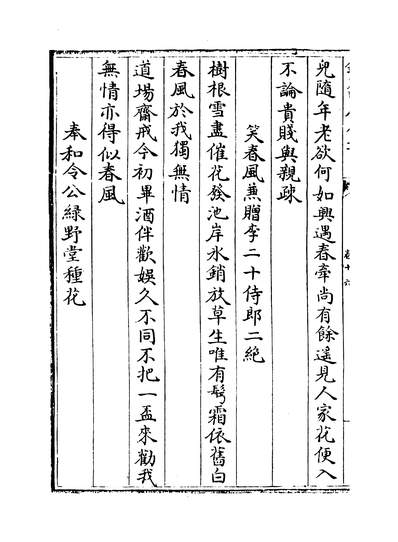 皃隨年老欲何如興遇春牽尚有餘遙見人家花便入
不論貴賤與親疎
笑春風兼贈李二十侍郎二絕
樹根雪盡催花發池岸氷銷放草生唯有鬢霜依舊白
春風於我獨無情
道場齋戒今初畢酒伴歡娛久不同不把一盃來勸我
無情亦得似春風
奉和令公綠野堂種花